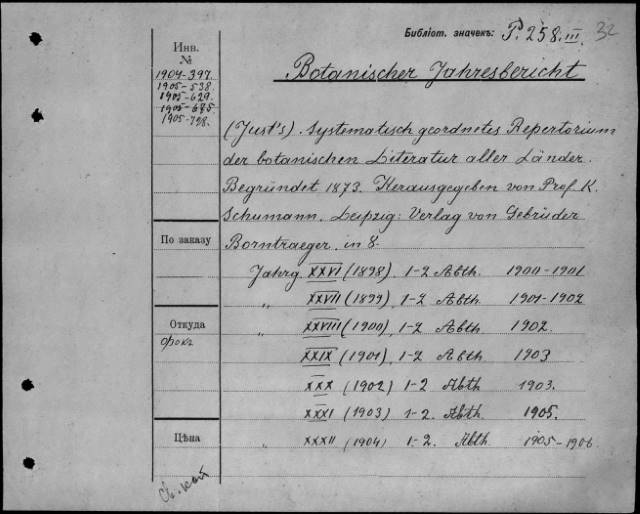 Библіот. значекъ: P. 258. III. 32
Инв.
№
1904-397.
1905-538.
1905-629.
1905-675.
1905-798.
Botanischer Jahresbericht
(Just's). Systematisch geordnetes Repertorium
der botanischen Literatur aller Länder.
Begründet 1873. Herausgegeben von Prof. K.
Schumann. Leipzig: Verlag von Gebrüder
Borntraeger. in 8.
По заказу
Jahrg. XXVI (1898) 1-2 Abth. 1900-1901
" XXVII (1899) 1-2 Abth. 1901-1902
" XXVIII (1900) 1-2 Abth. 1902.
XXIX (1901) 1-2 Abth. 1903
XXX (1902) 1-2 Abth 1903.
XXXI (1903) 1-2. Abth. 1905.
" XXXII (1904) 1-2. Abth. 1905-1906.
Откуда
Цѣна